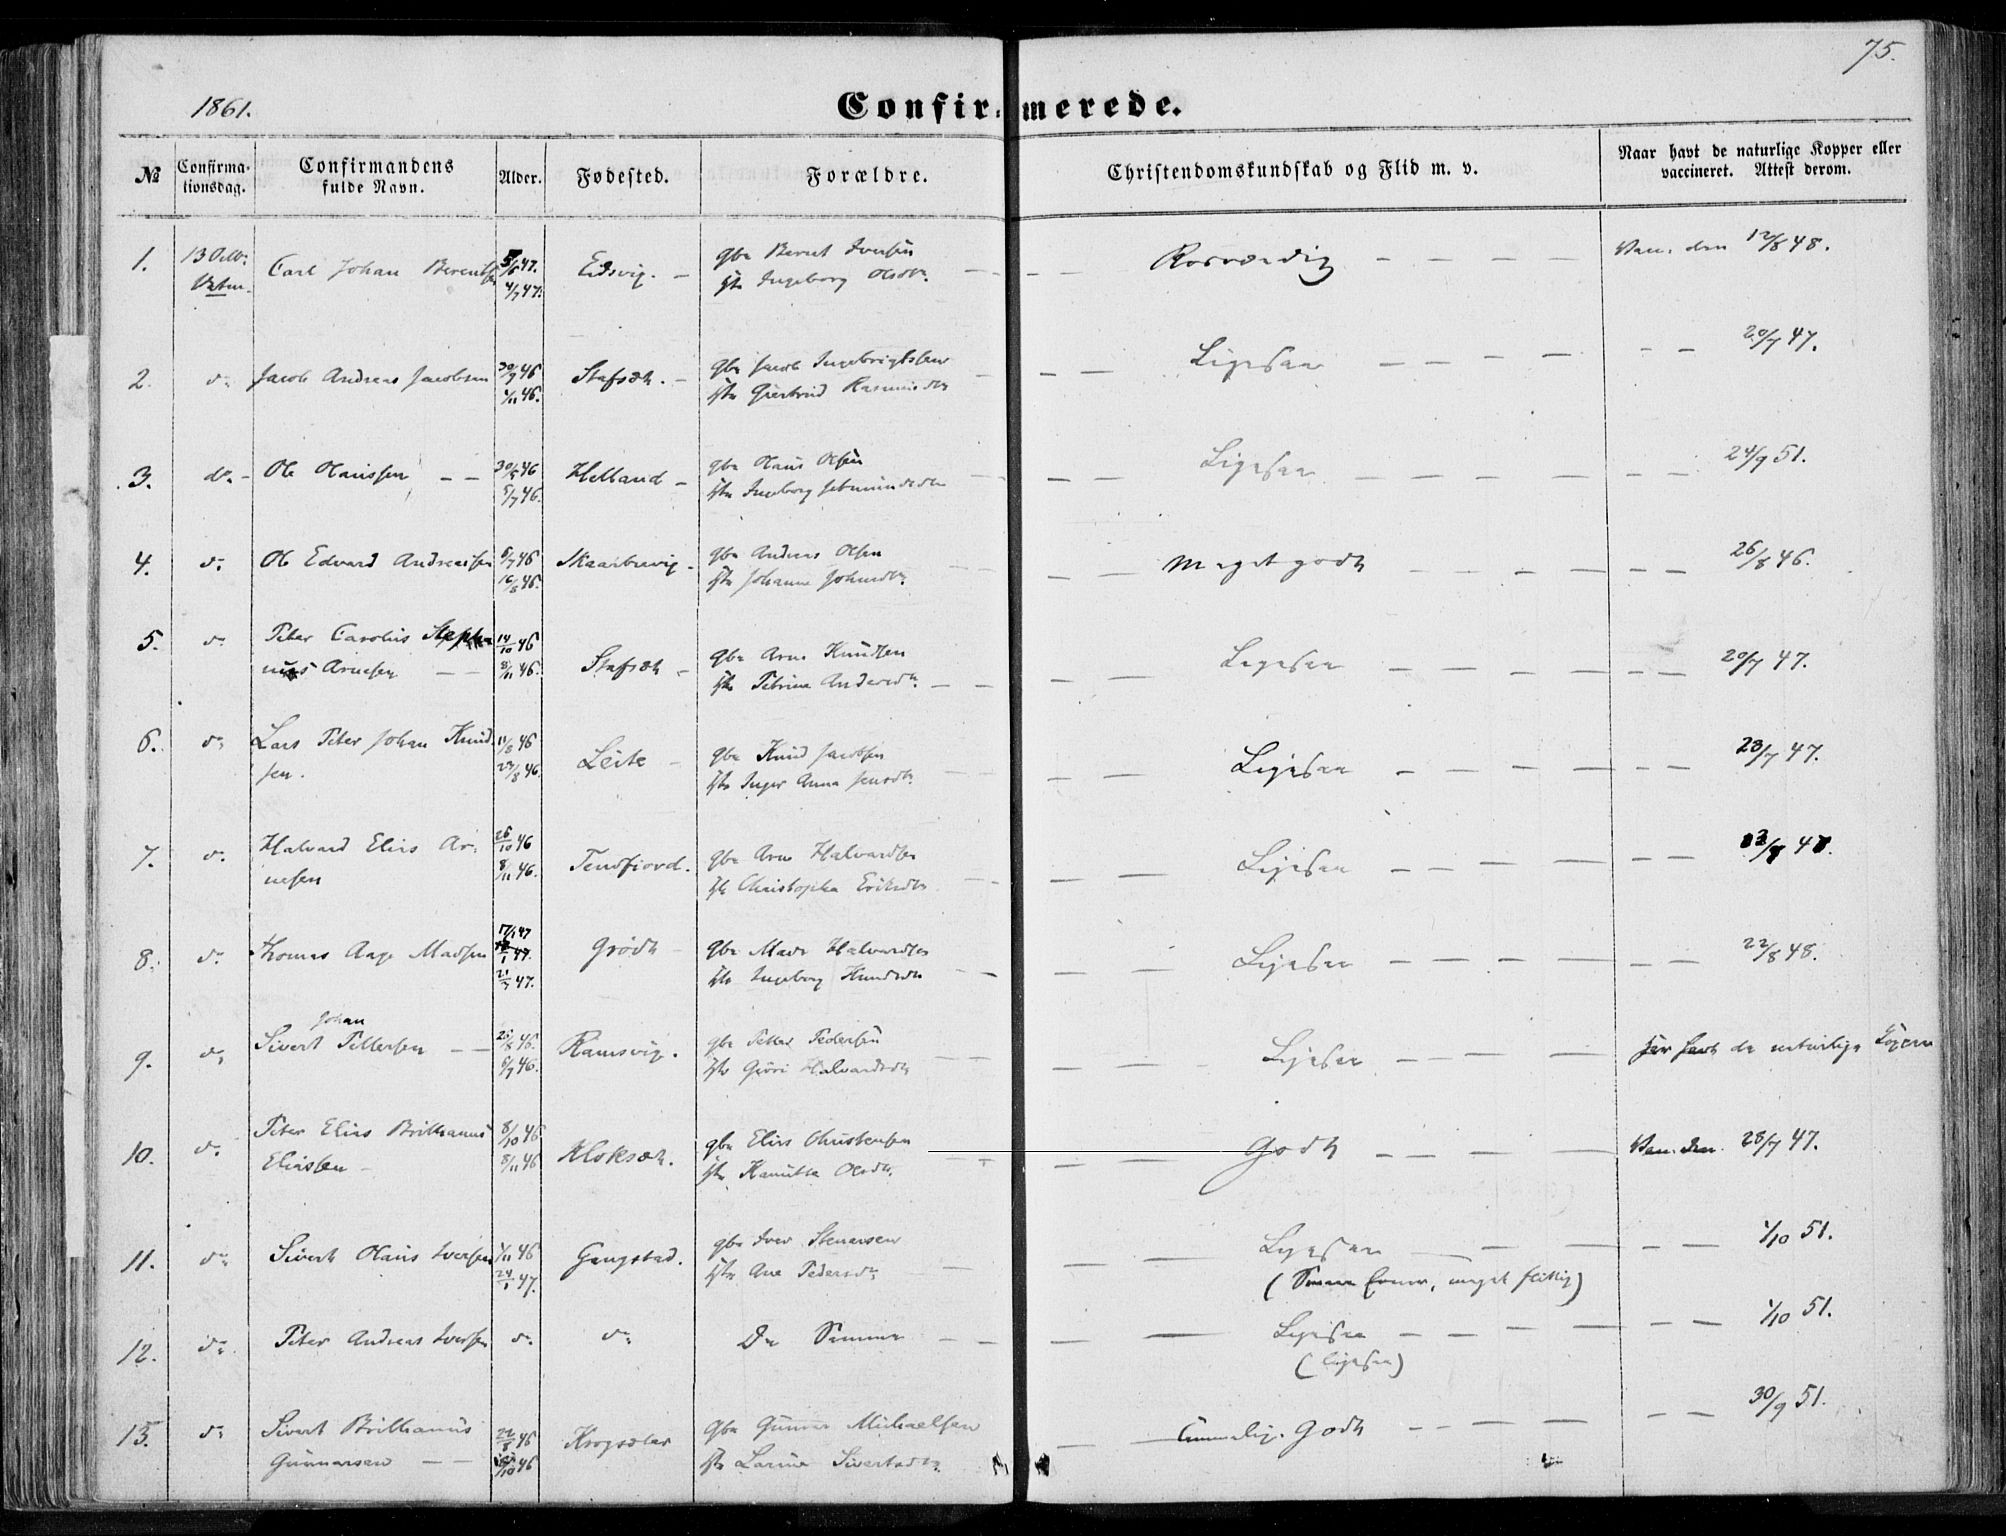 75.
1861.
Confirmerede.
№ Confirmationsdag. Confirmandens fulde Navn. Alder. Fødested. Forældre. Christendomskundskab og Flid m. v. Naar havt de naturlige Kopper eller vaccineret. Attest derom.
1. 13 Octbr. Carl Johan Berentsen 5/6 47. Eidsvig. – gbr Bernt Iversen Rosværdig Vac. den 12/8 48.
4/7 47. Ingeborg Olsdr.
2. do Jacob Andreas Jacobsen 30/9 46 Stafsæth. – gbr Jacob Ingebrigtsen Ligesaa 20/7 47.
1/11 46. Giertrud Rasmusdr
3. do – Ole Olaussen – – 30/5 46 Helland – gbr Olaus Olsen Ligesaa 24/9 51.
5/7 46. Ingeborg
4. do Ole Edvard Andreassen 6/7 46 Skaarbrevig – gbr Andreas Olsen Meget godt 26/8 46.
16/8 46. Johanne Johnsdr
5. do Peter Carolus Stepha 14/10 46 Stafseth – gbr Arne Knudsen Ligesaa 20/7 47.
nus Arnesen – – 8/11 46. Petrine Andersdr
6. do Lars Peter Johan Knud 11/8 46 Leite – gbr Knud Jacobsen Ligesaa 23/7 47.
sen. 23/8 46. Inger Anna Jensdr
7. do Halvard Elias Ar- 26/10 46 Tenfiord. gbr Arne Halvardsen Ligesaa
nesen 8/11 46. Christopha Eriksdr
8. do Thomas Aage Madsen 17/1 47 Grødt – gbr Mads Halvardsen Ligesaa 22/8 48.
21/7 47. Ingeborg Knudsdr
Johan
9. do Sivert Pettersen – – 25/8 46. Ramsvig. gbr Petter Pedersen Ligesaa har havt de naturlige
6/7 46. Giøri Halvardsdr
10. do Peter Elias Brithanus 8/10 46 Kloksæth. gbr Elias Christensen Godt Vac. den 28/7 47.
Eliassen – 8/11 46 Olsdr.
11. do Sivert Olaus Iversen 1/11 46 Gangstad. gbr Iver Stenersen Ligesaa 1/10 51.
24/1 47. Ane Pedersdr (Svage Evner, meget flittig)
12. do Peter Andreas Iversen do do De Samme Ligesaa 1/10 51.
(ligesaa)
13. do Sivert Brithanus 22/8 46 Krogsæter gbr Gunnar Michaelsen Temmelig Godt 30/9 51.
Gunnarsen – – /10 46 Larine Sivertsdr.